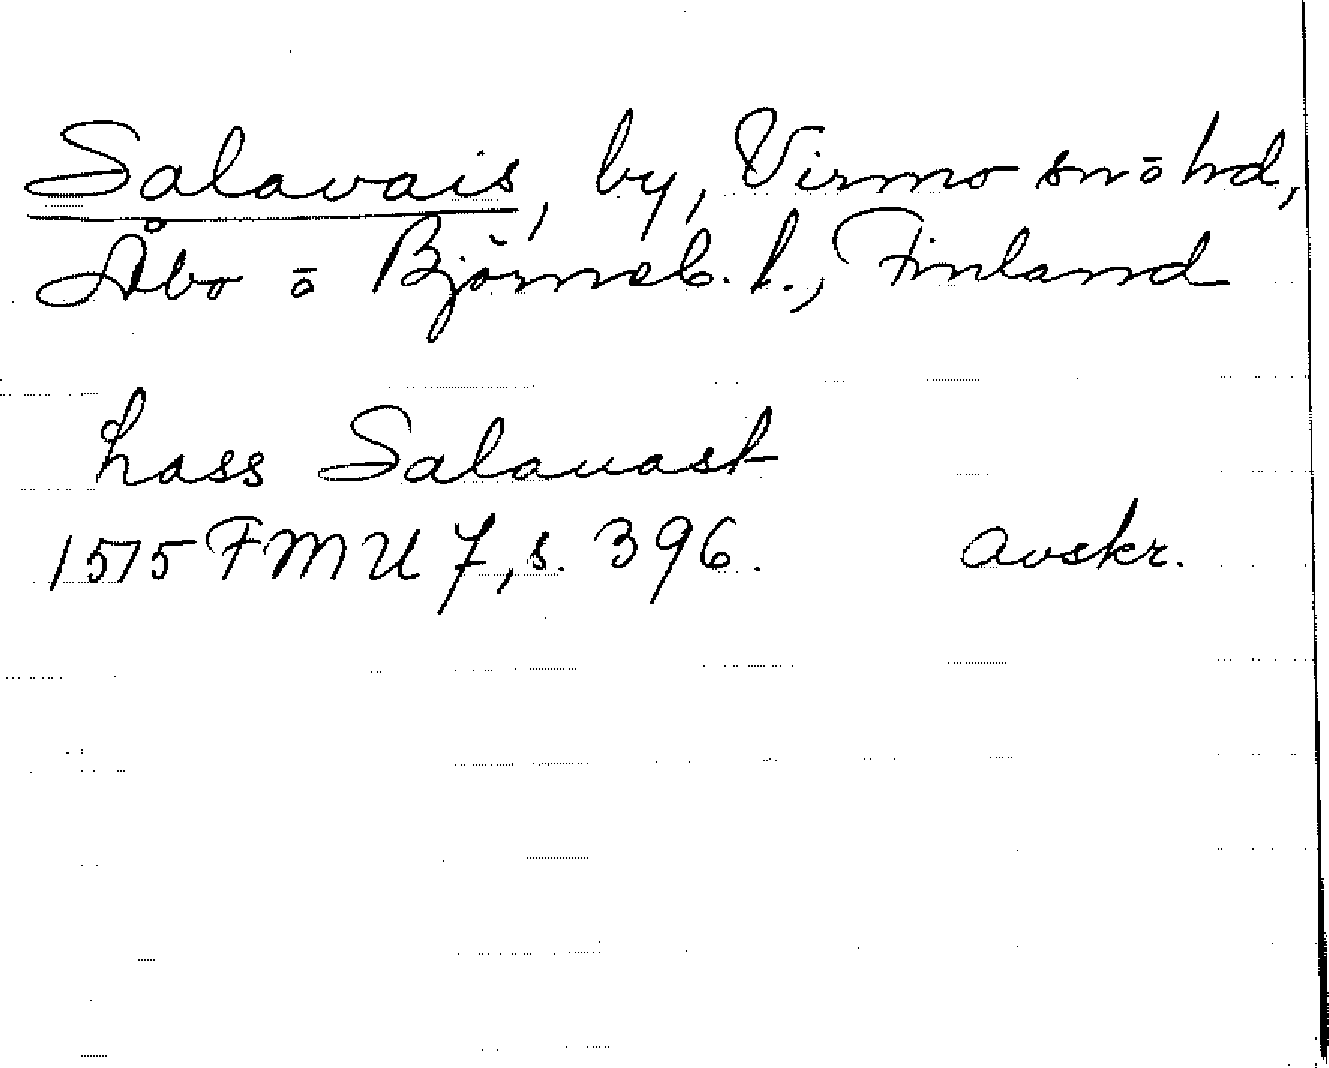 Salavais, by, Virmo sn o hd,
Åbo o Björneb. l., Finland
Lass Salauast
1575 FMU 7, s. 396. avskr.